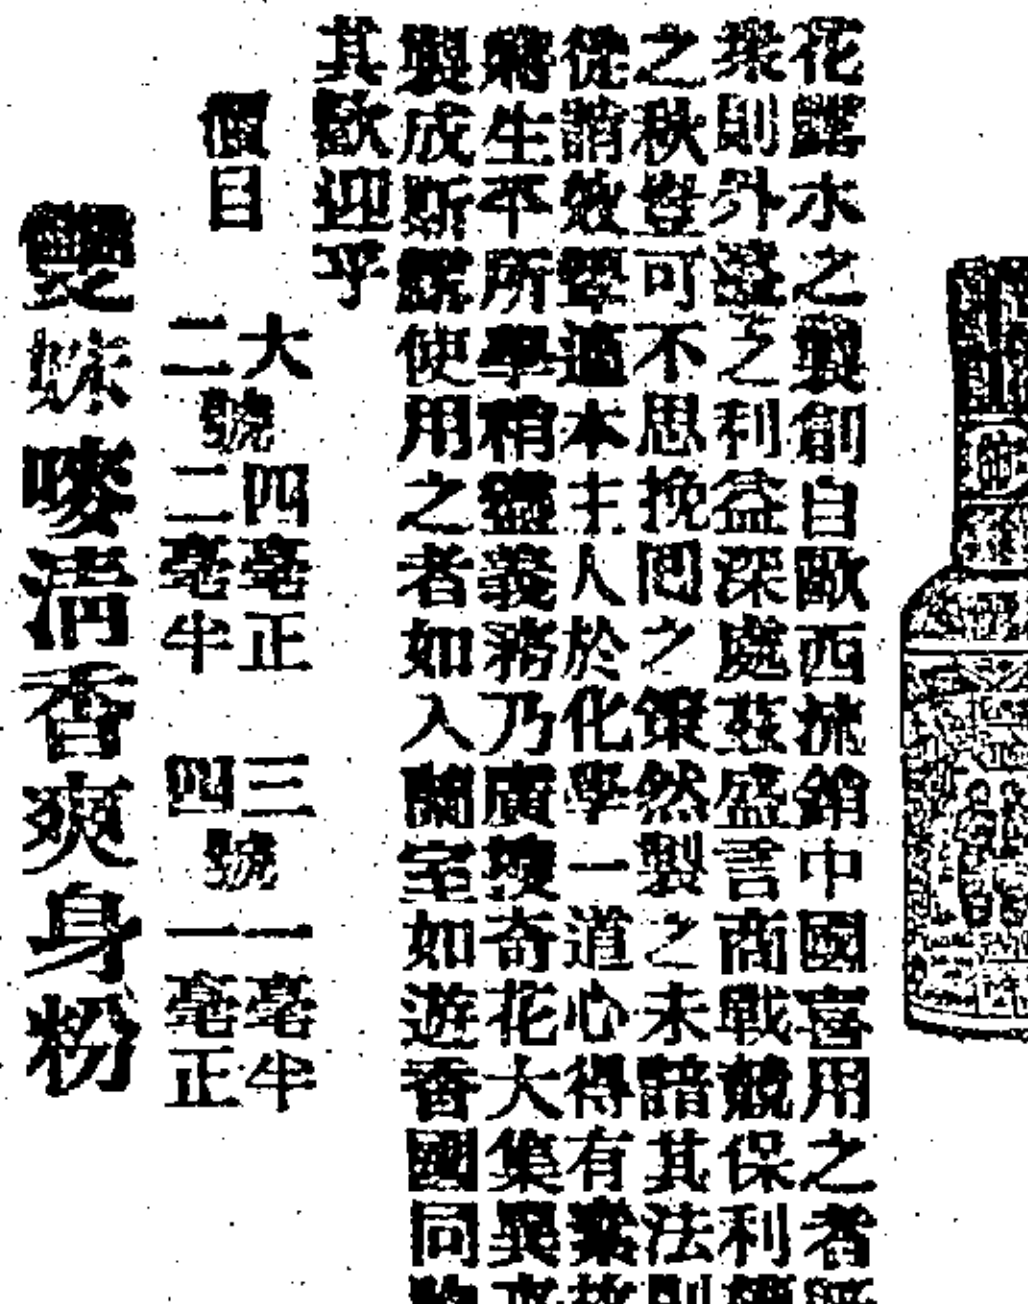 花露水之製創自歐西流銷中國喜用之者
衆則外溢之利益深處茲盛言商戰競保利
之秋豈可不思挽回之策然製之未諳其法則
從諸效顰適本主人於化學一道心得有素
將生平所學稍盡義務乃廣搜奇花大集異
製成斯露使用之者如入蘭室如遊香國同
其歡迎乎
價目
大號四毫正
二號二毫半
三號一毫半
四號一毫正
雙妹嘜清香爽身粉